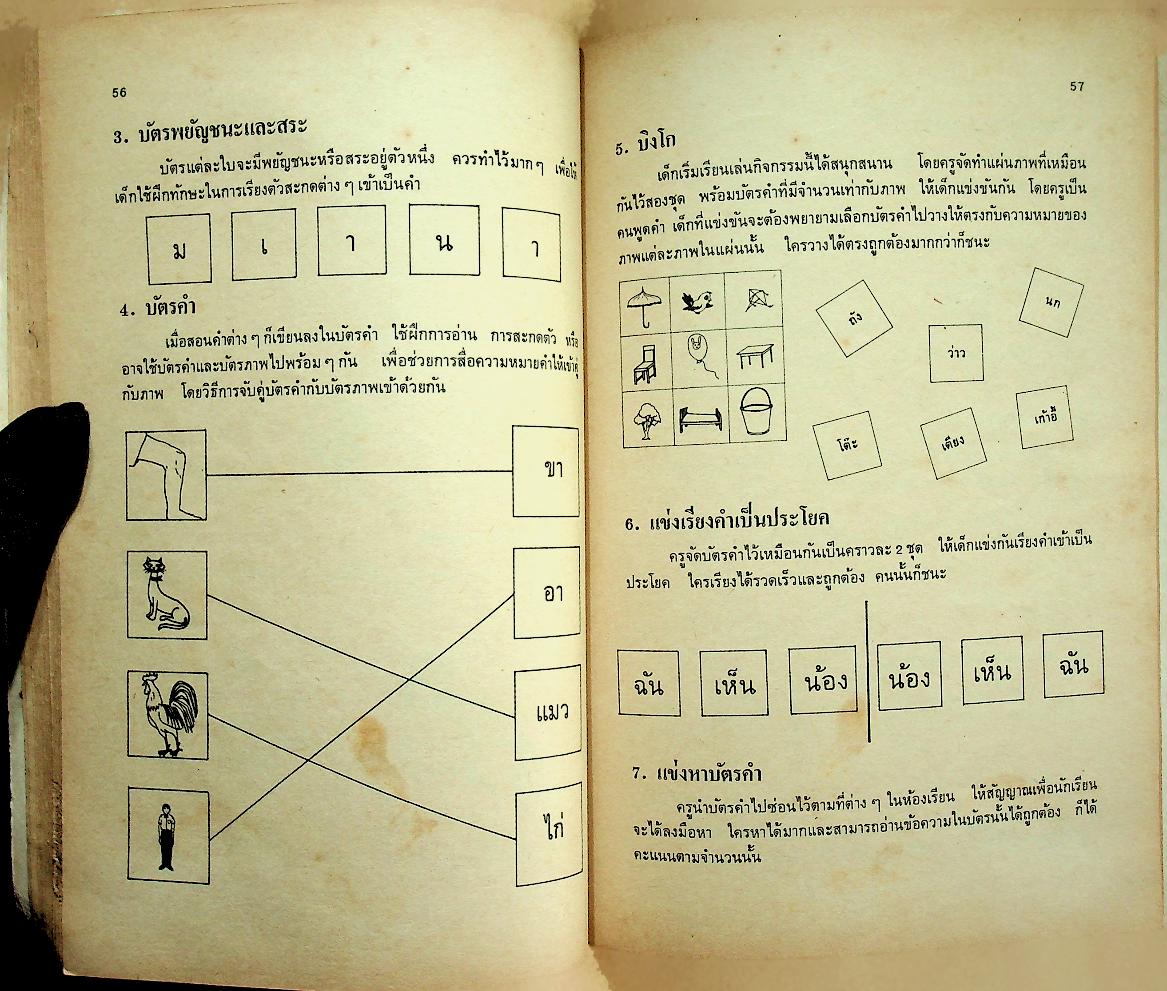 56
3. บัตรพยัญชนะและสระ
บัตรแต่ละใบจะมีพยัญชนะหรือสระอยู่ตัวหนึ่ง ควรทำไว้มาก ๆ เพื่อให้
เด็กใช้ฝึกทักษะในการเรียงตัวสะกดต่าง ๆ เข้าเป็นคำ
ม เ า น า
4. บัตรคำ
เมื่อสอนคำต่าง ๆ ก็เขียนลงในบัตรคำ ใช้ฝึกการอ่าน การสะกดตัว หรือ
อาจใช้บัตรคำและบัตรภาพไปพร้อม ๆ กัน เพื่อช่วยการสื่อความหมายคำให้เข้าคู่
กับภาพ โดยวิธีการจับคู่บัตรคำกับบัตรภาพเข้าด้วยกัน
ขา
อา
แมว
ไก่
57
5. บิงโก
เด็กเริ่มเรียนเล่นกิจกรรมนี้ได้สนุกสนาน โดยครูจัดทำแผ่นภาพที่เหมือน
กันไว้สองชุด พร้อมบัตรคำที่มีจำนวนเท่ากับภาพ ให้เด็กแข่งขันกัน โดยครูเป็น
คนพูดคำ เด็กที่แข่งขันจะต้องพยายามเลือกบัตรคำไปวางให้ตรงกับความหมายของ
ภาพแต่ละภาพในแผ่นนั้น ใครวางได้ตรงถูกต้องมากกว่าก็ชนะ
ถัง
นก
ว่าว
โต๊ะ
เตียง
เก้าอี้
6. แข่งเรียงคำเป็นประโยค
ครูจัดบัตรคำไว้เหมือนกันเป็นคราวละ 2 ชุด ให้เด็กแข่งกันเรียงคำเข้าเป็น
ประโยค ใครเรียงได้รวดเร็วและถูกต้อง คนนั้นก็ชนะ
ฉัน เห็น น้อง น้อง เห็น ฉัน
7. แข่งหาบัตรคำ
ครูนำบัตรคำไปซ่อนไว้ตามที่ต่าง ๆ ในห้องเรียน ให้สัญญาณเพื่อนักเรียน
จะได้ลงมือหา ใครหาได้มากและสามารถอ่านข้อความในบัตรนั้นได้ถูกต้อง ก็ได้
คะแนนตามจำนวนนั้น